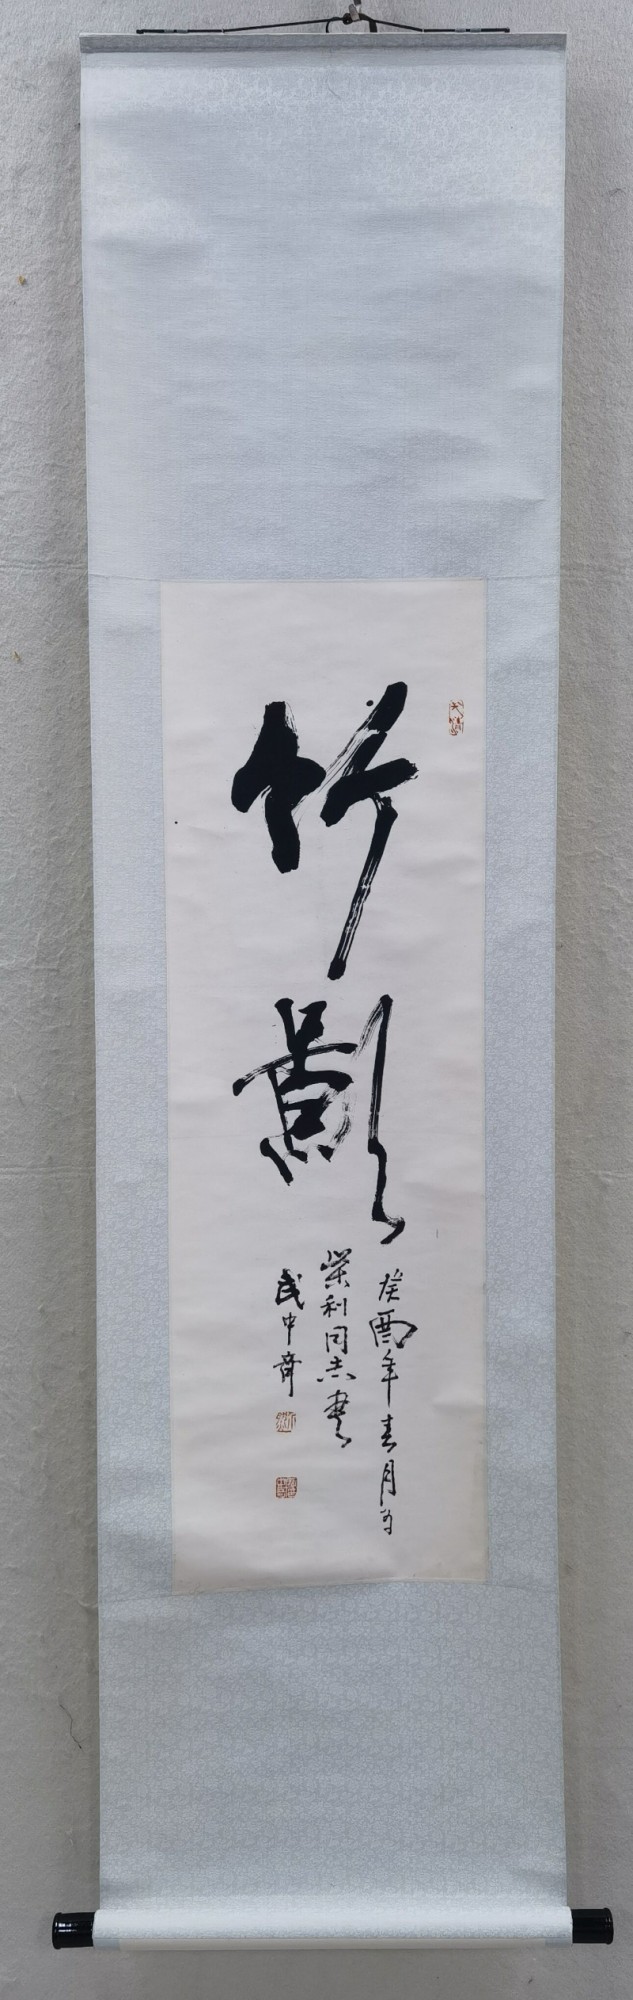 竹影
癸酉年春月为
荣利同志书
武中奇